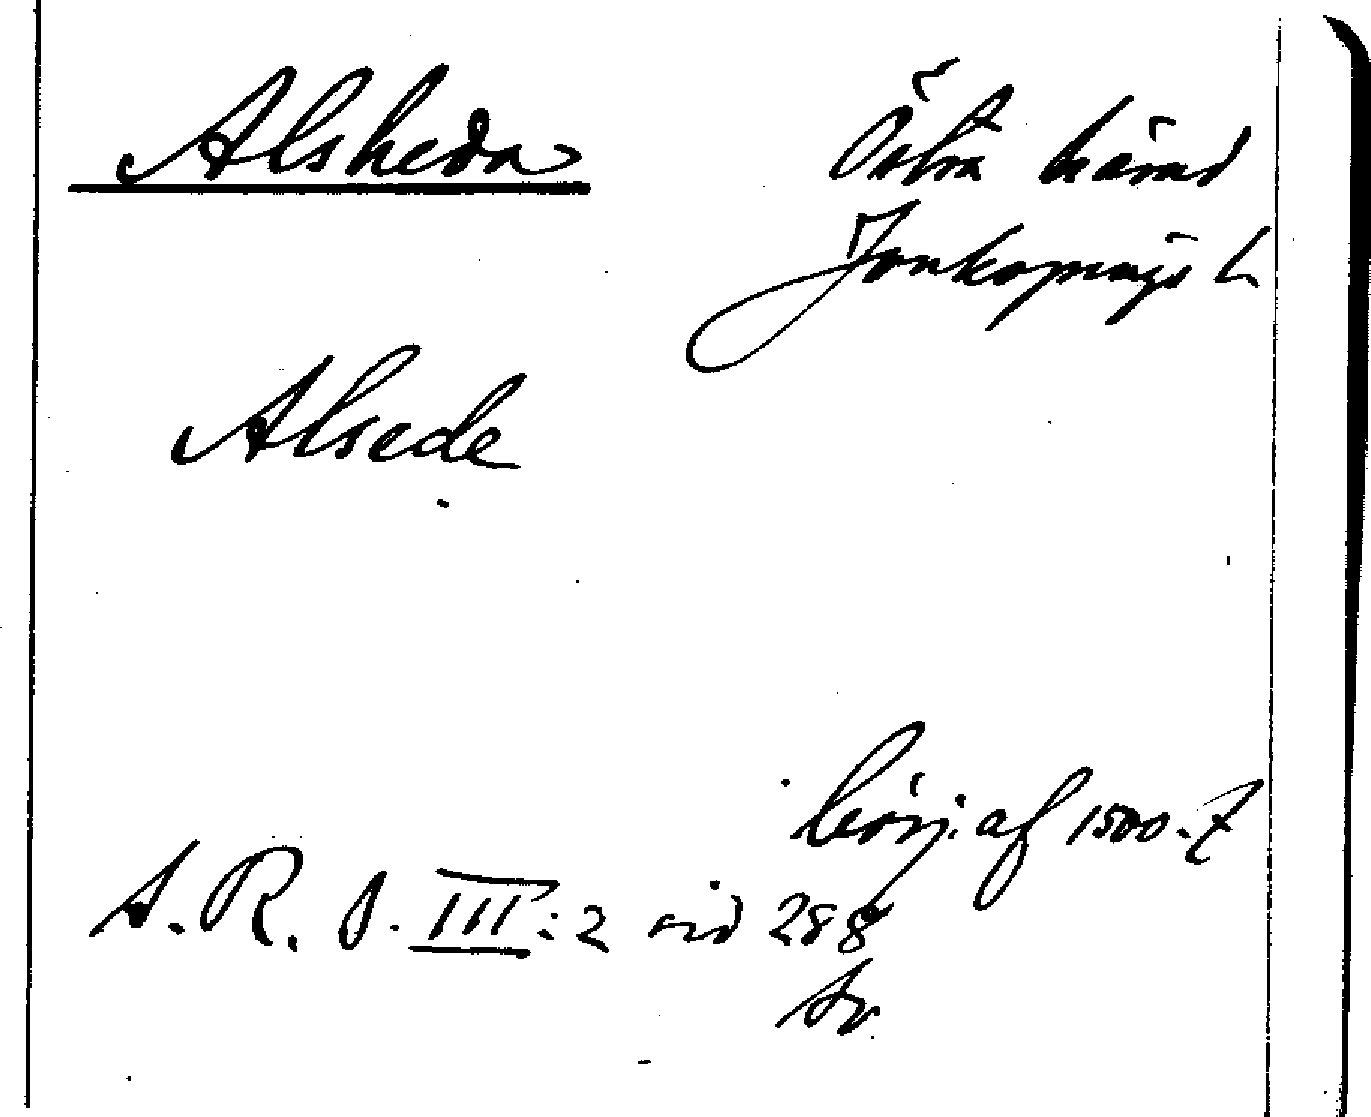 Alsheda
Östra härad
Jönköpings l.
Alsede
börj. af 1500-t
S. R. O. III:2 sid 288